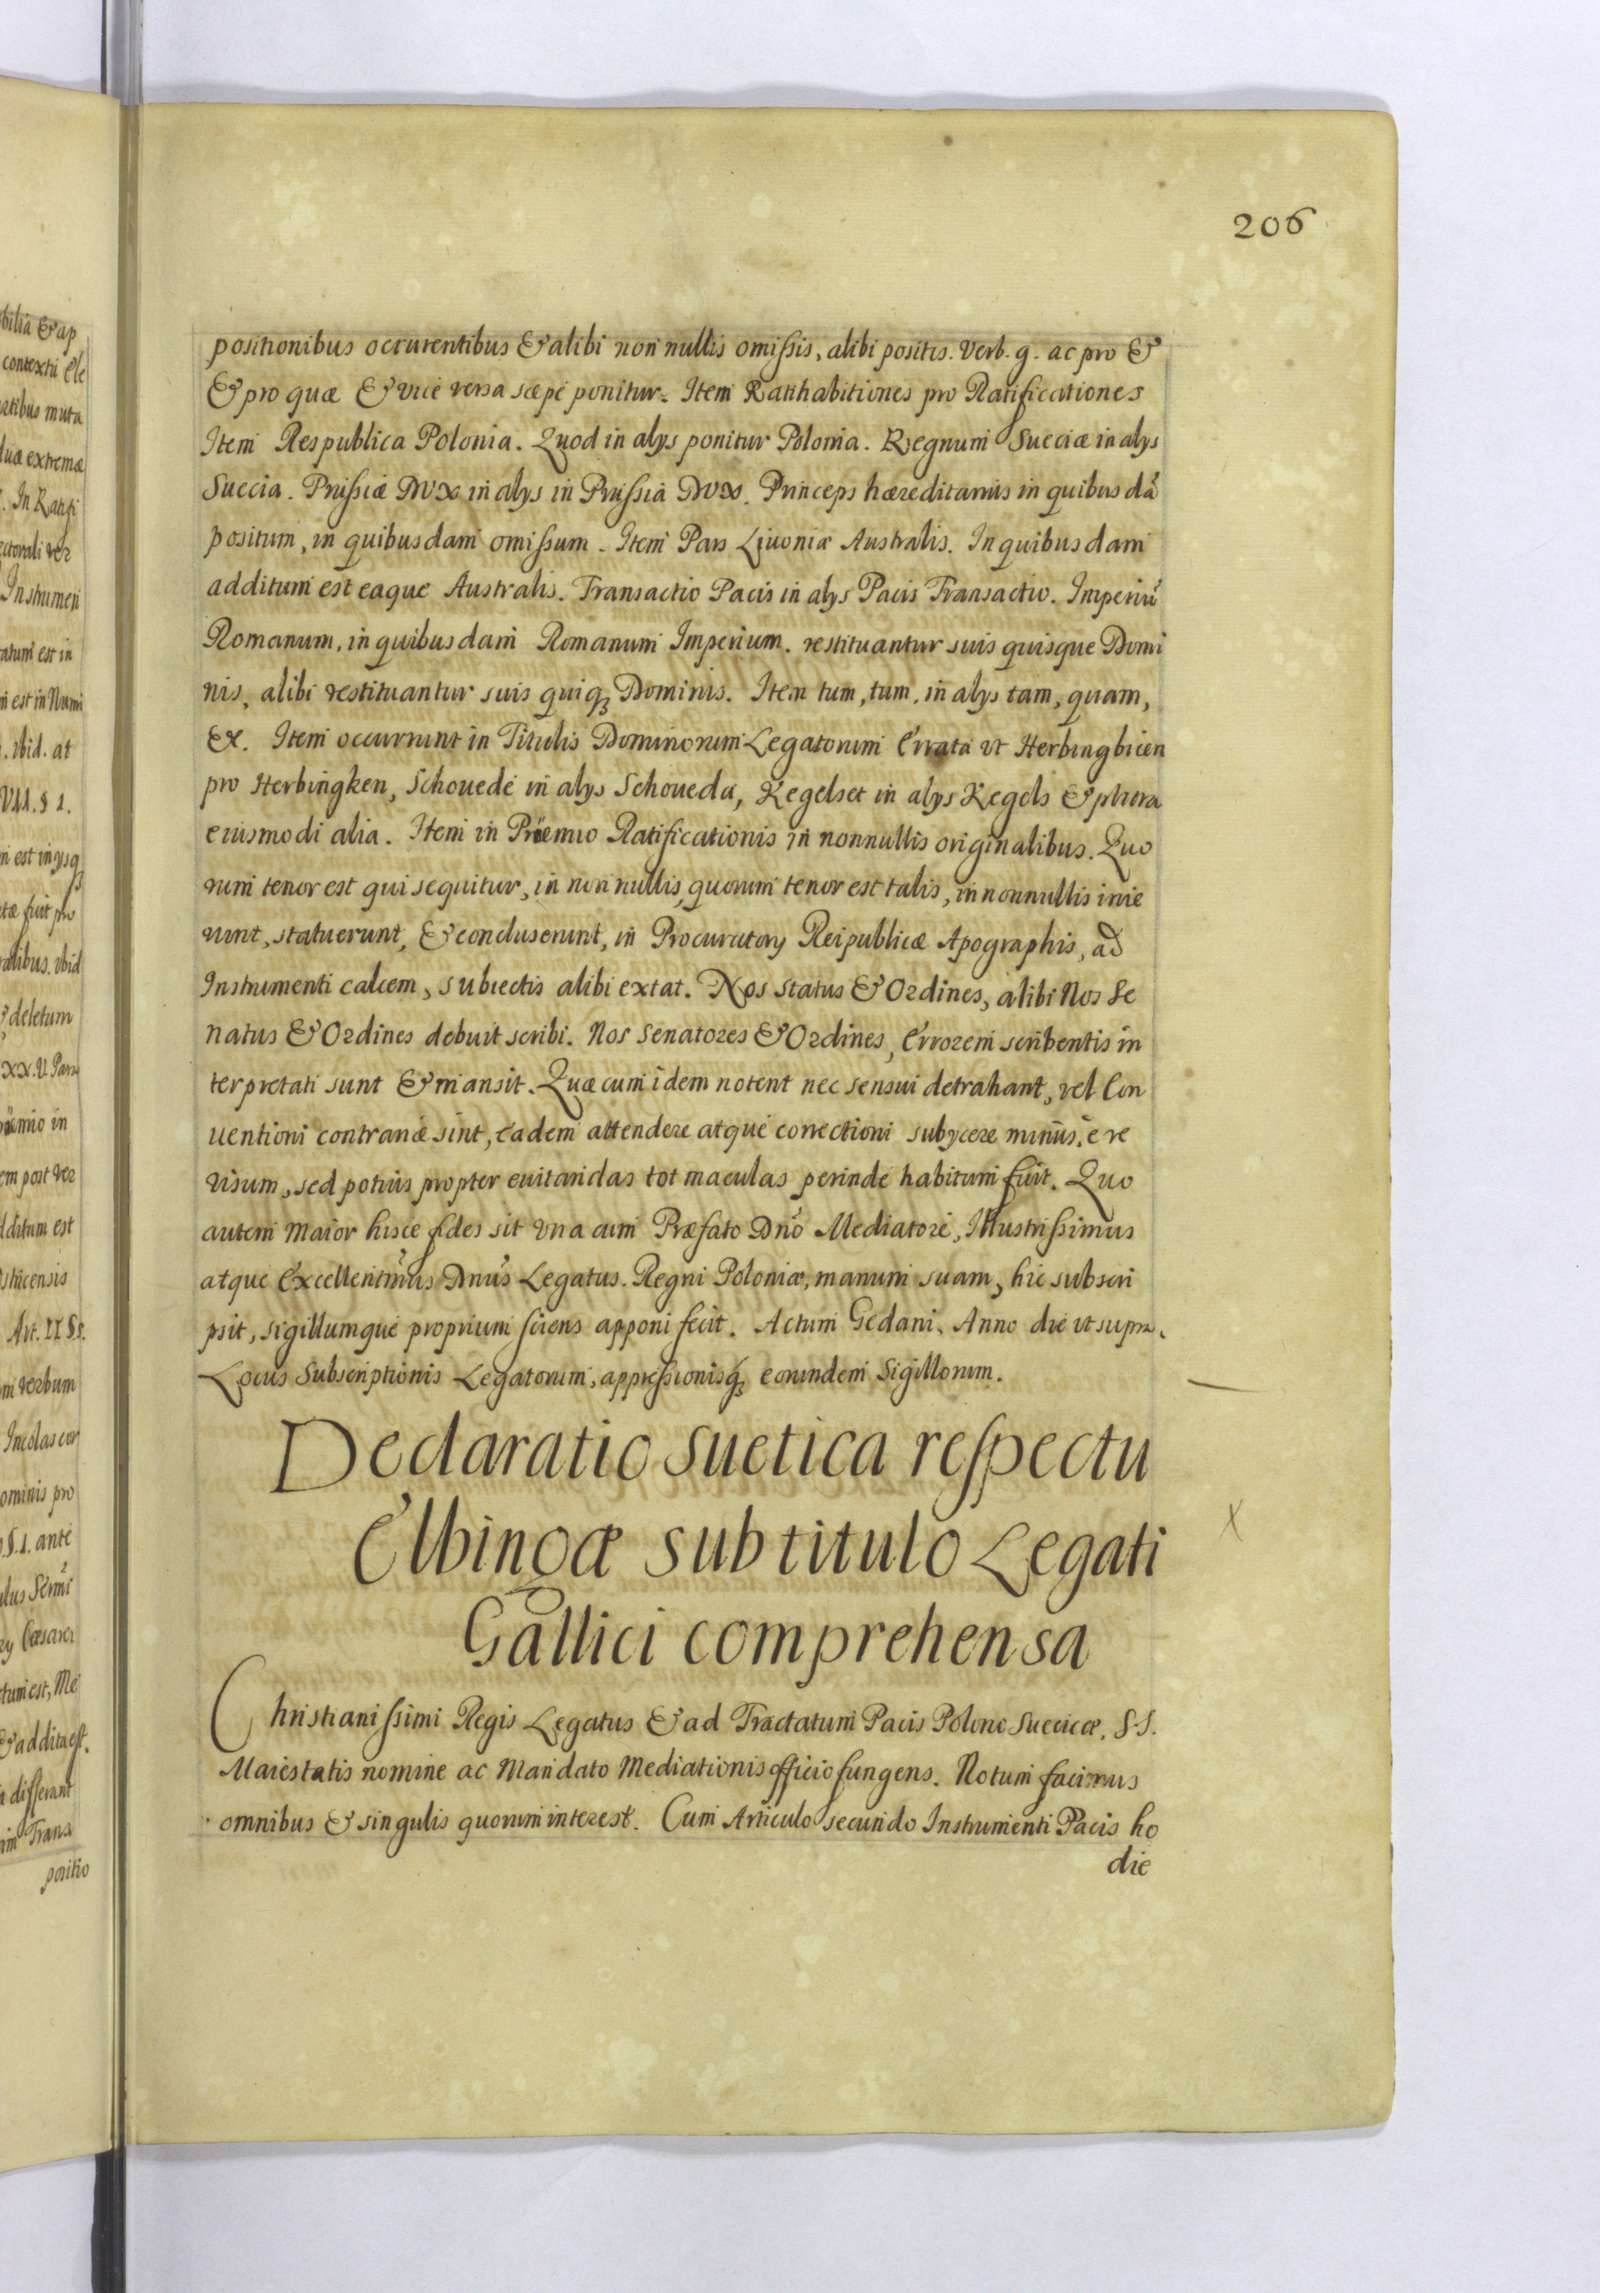 206
positionibus occurentibus & alibi non nullis omissis, alibi positis. Verb. g. ac pro &
& pro quæ & vice versa sæpe ponitur. Item Ratihabitiones pro Ratificationes
Item Respublica Polonia. Quod in alys ponitur Polonia. Regnum Sueciæ in alys
Suecia. Prussiæ Dux in alys in Prussia Dux. Princeps hæreditarius in quibus dã
positum, in quibusdam omissum. Item Pars Liuoniæ Australis. In quibusdam
additum est eaque Australis. Transactio Pacis in alys Pacis Transactio. Imperiũ
Romanum, in quibusdam Romanum Imperium. restituantur suis quisque Domi
nis, alibi restituantur suis quiq3 Dominis. Item tum, tum, in alys tam, quam,
&. Item occurrunt in Titulis Dominorum Legatorum Errata vt Herbingbicen
pro Herbingken, Schouede in alys Schoueda, Kegelset in alys Kegels & plura
eiusmodi alia. Item in Prœmio Ratificationis in nonnullis originalibus. Quo
rum tenor est qui sequitur, in non nullis, quorum tenor est talis, in nonnullis inie
runt, statuerunt, & concluserunt, in Procuratory Reipublicæ Apographis, ad
Instrumenti calcem, subiectis alibi extat. Nos status & Ordines, alibi Nos Se
natus & Ordines debuit scribi. Nos Senatores & Ordines, Errorem scribentis in
terpretati sunt & mansit. Quæ cum idem notent nec sensui detrahant, vel Con
uentioni contraria sint, eadem attendere atque correctioni subycere minus è re
visum, sed potius propter euitandas tot maculas perinde habitum fuit. Quo
autem maior hisce fides sit vna cum Præfato Dnõ Mediatore, Illustrissimus
atque Excellentm̃us Dnũs Legatus. Regni Poloniæ, manum suam, hic subscri
psit, sigillumque proprium sciens apponi fecit. Actum Gedani, Anno die vt supra.
Locus Subscriptionis Legatorum, appressionisq3 eorundem Sigillorum.
Declaratio suetica respectu
Elbingæ sub titulo Legati
Gallici comprehensa
Christianissimi Regis Legatus & ad Tractatum Pacis Polono Suecicæ, S. S.
Maiestatis nomine ac Mandato Mediationis officio fungens. Notum facimus
omnibus & singulis quorum interest. Cum Articulo secundo Instrumenti Pacis ho
die